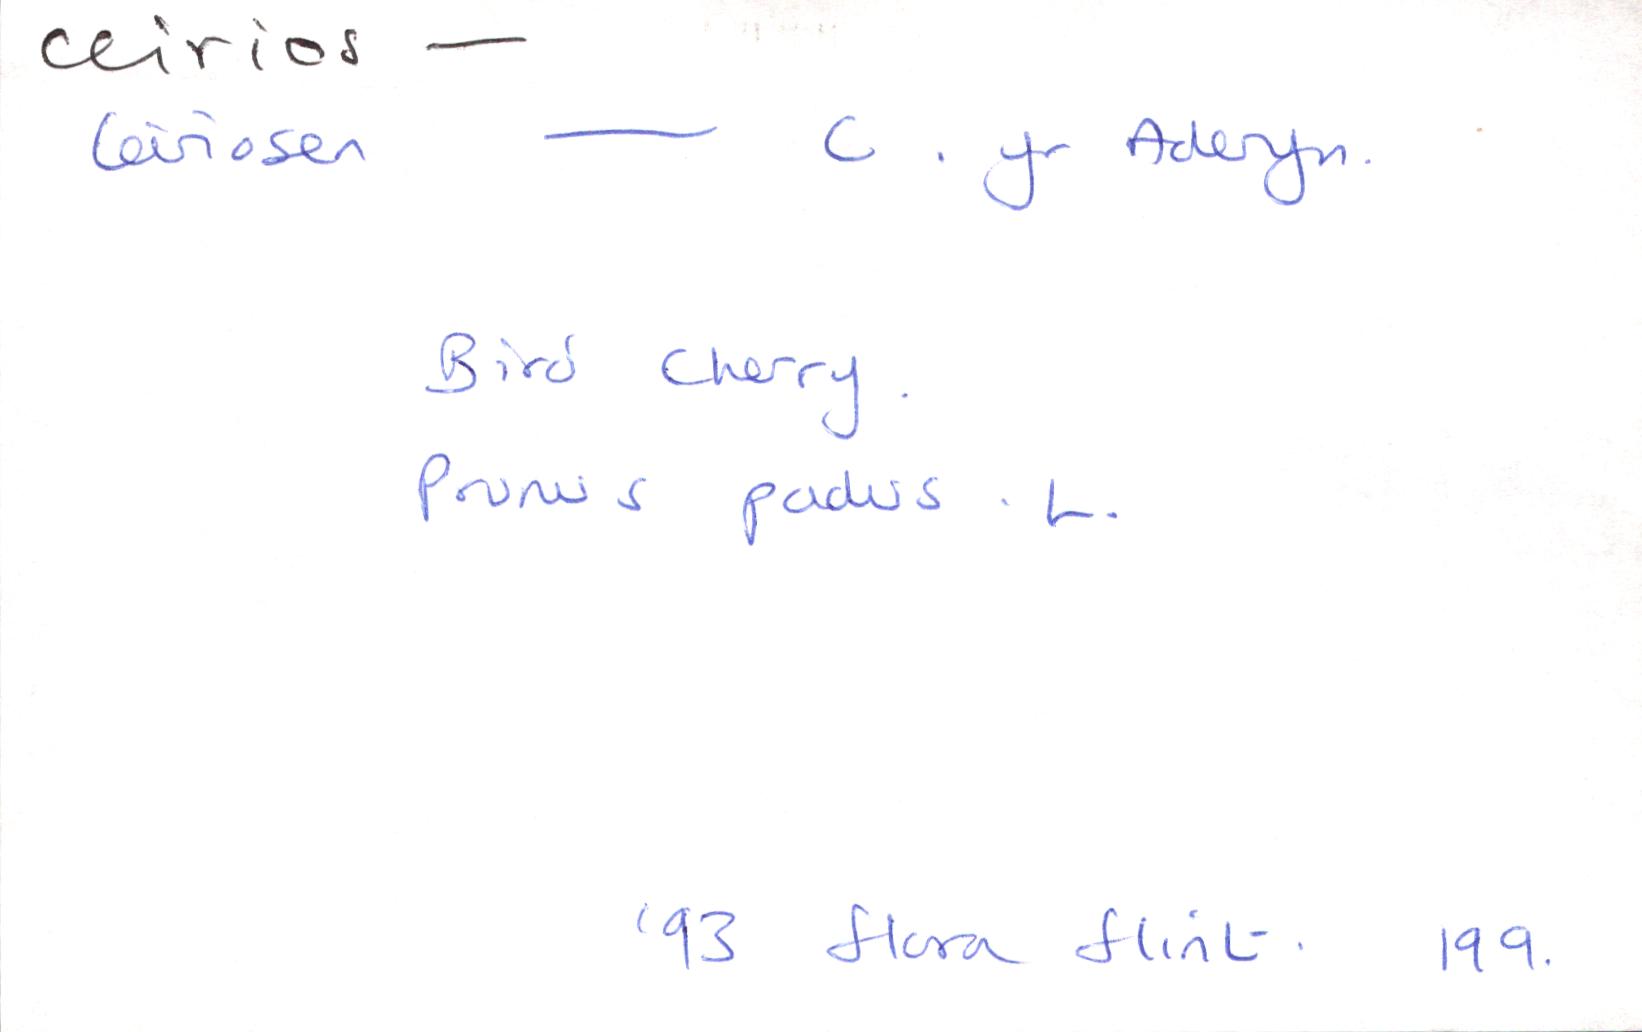 ceirios —
Ceiriosen — C. yr Aderyn.
Bird Cherry.
Prunus padus. L.
'93 flora flint. 199.